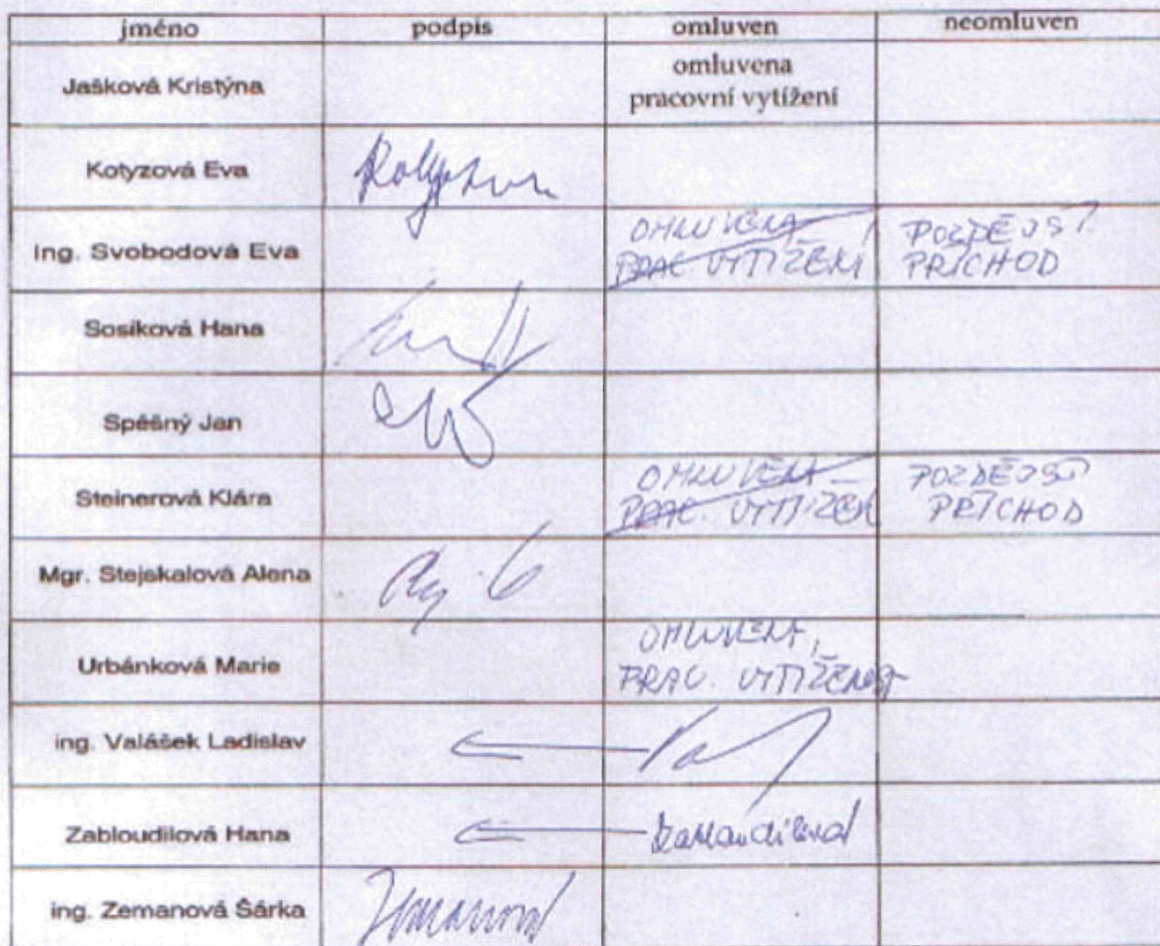 jméno podpis omluven neomluven
Jašková Kristýna omluvena
pracovní vytížení
Kotyzová Eva
ing. Svobodová Eva OMLUVENA POZDĚJŠÍ
PRAC. VYTÍŽENÍ PŘÍCHOD
Sosíková Hana
Spěšný Jan
Steinerová Klára OMLUVENA POZDĚJŠÍ
PRAC. VYTÍŽENÍ PŘÍCHOD
Mgr. Stejskalová Alena
Urbánková Marie OMLUVENA,
PRAC. VYTÍŽENOST
ing. Valášek Ladislav
Zabloudilová Hana Zabloudilová
ing. Zemanová Šárka Zemanová